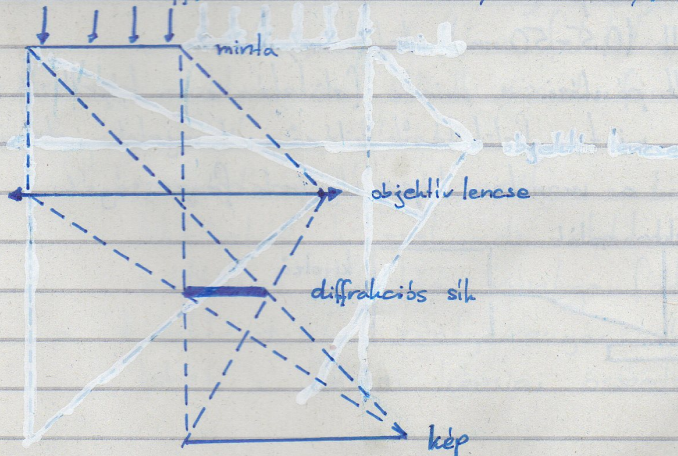 minta
objektív lencse
diffrakciós sík
kép